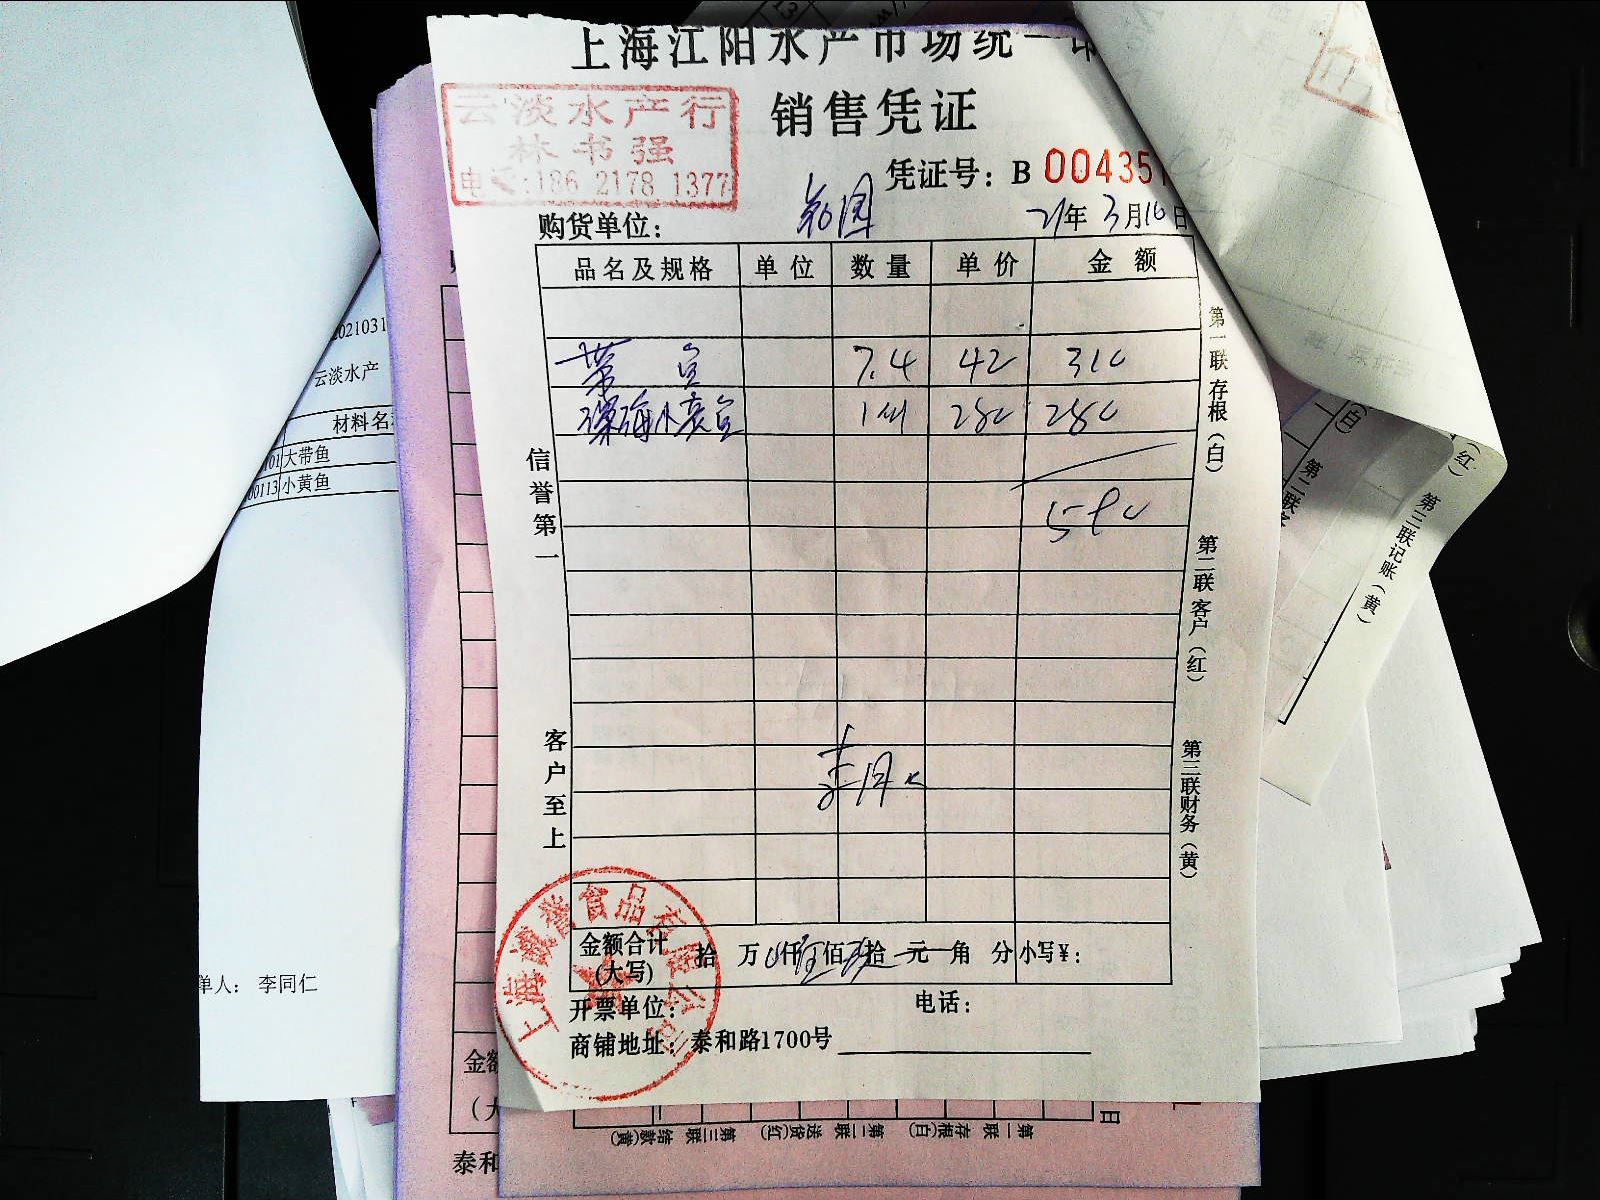 上海江阳水产市场统一印
云淡水产行
林书强
电话:186 2178 1377
销售凭证
凭证号: B 004351
购货单位:
21年3月16日
品名及规格 单位 数量 单价 金额
带鱼 7.4 42 310
深海小黄鱼 1件 280 280
590
信誉第一
客户至上
第一联存根(白)
第二联客户(红)
第三联财务(黄)
金额合计 拾 万 仟 伍佰 玖拾 元 角 分 小写¥:
(大写)
开票单位:
电话:
商铺地址: 泰和路1700号
食品有限公司
上海
2021031
云淡水产
材料名
101 大带鱼
00113 小黄鱼
单人: 李同仁
金额
(大
泰和
日
第一联 存根(白) 第二联 送货(红) 第三联 结款(黄)
(白)
第二联客
(红)
第三联记账(黄)